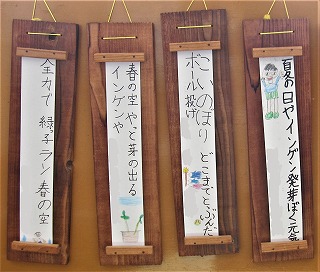 夏の日やインゲン発芽ぼく元気
こいのぼり どこまでとぶんだ
ボール投げ
春の空 やっと芽の出る
インゲンや
全力で 緑っ子ラン 春の空